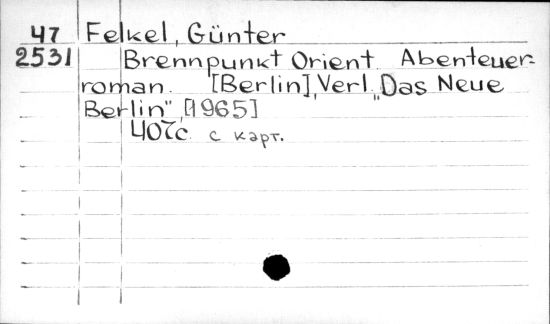 47 Felkel, Günter
2531 Brennpunkt Orient. Abenteuer-
roman. [Berlin], Verl. „Das Neue
Berlin", [1965]
407с. с карт.